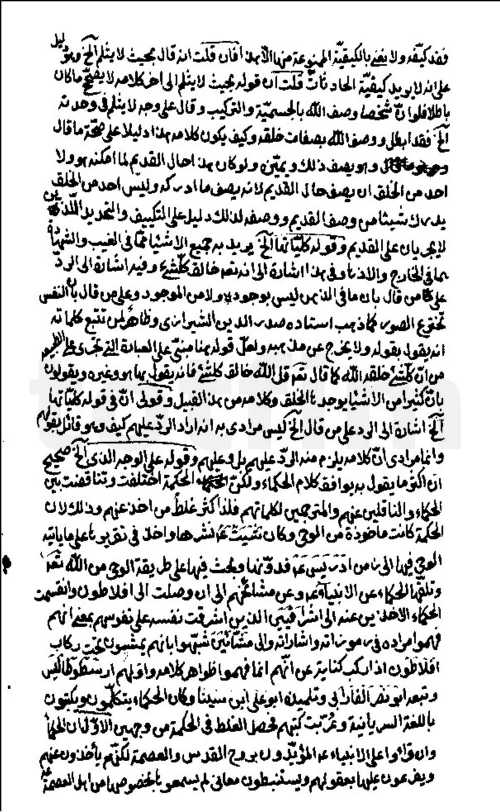 فقد كيّفه ولا يغني بالكيفيّة الممنوعة منها الا بهذا فان قلت انه قال بحيث لا ينثلم الخ وهو دليل
على انه لا يريد كيفيّة الحادثات قلت ان قوله بحيث لا ينثلم الى اخر كلامه لا يفتح ما كان
باطلا فلو انّ شخصا وصف الله بالجسميّة والتركيب وقال على وجه لا ينثلم في وحدته
الخ فقد ابطل ووصف الله بصفات خلقه وكيف يكون كلامه بهذا دليلا على صحّة ما قال
وهو يصف ذلك ويميّزه ولو كان بهذا حال القديم لما امكنه هو ولا
احد من الخلق ان يصف حال القديم لانه يصف ما ادركه وليس احد من الخلق
يدرك شيئا من وصف القديم ووصفه لذلك دليل على التكييف والتحديد اللذين
لا يجريان على القديم وقوله كليّاتها الخ يريد به جميع الاشياء مما في الغيب والشهادة
مما في الخارج والاذهان وفي هذا اشارة الى انه تعم خالق كلّشئ وفيه اشارة الى الردّ
على من قال بان ما في الذهن ليس بموجود ولا من الموجود وعلى من قال بان النفس
تخترع الصور كما ذهب استاده صدر الدين الشيرازى وظاهر لمن تتبع كلماته
انه يقول بقوله ولا يخرج عن مذهبه ولعلّ قوله هنا مبنيّ على العبارة التي تجرى على
من ان كلّشئ خلقه الله كما قال تعم قل الله خالق كلّشئ فانه يقول بها هو وغيره ويقولون
بان كثيرا من الاشياء يوجدها الخلق وكلامه من هذا القبيل وقولى انّ في قوله كلياتها
الخ اشارة الى الرد على من قال الخ ليس مرادى به انه اراد الردّ عليهم كيف وهو قائل بقولهم
وانما مرادى انّ كلامه يلزم منه الردّ عليهم بل وعليه وقوله على الوجه الذى الخ صحيح
ان اكثر ما يقول به يوافق كلام الحكماء ولكنّ الحكمة اختلفت وتناقضت بين
الحكماء والناقلين عنهم والمترجمين لكلماتهم فلذا كثر غلط من اخذ عنهم وذلك لان
الحكمة كانت ماخوذة من الوحى وكان شيث ع نشرها واخذ في تقريرها على ما ياتيه
الوحى فيها الى زمن ادريس ع فدوّنها وبحث فيها على طريقة الوحى من الله تعم
وتلقّتها الحكماء عن الانبياء ع وعن مشائخهم الى ان وصلت الى افلاطون وانقسمت
الحكماء الاخذين عنه الى اشراقيين الذين اشرقت نفسه على نفوسهم بمعنى انهم
فهموا مراده في رموزاته واشاراته والى مشّائين شبّهوا بانهم يمشون تحت ركاب
افلاطون اذا ركب كناية عن انّهم انما فهموا ظواهر كلامه واولهم ارسطوطاليس
وتبعه ابونصر الفارابى وتلميذه ابو على ابن سينا وكان الحكماء يتكلّمون ويكتبون
باللغة السريانية وعُرّبت كتبهم فحصل الغلط في الحكمة من وجهين الاوّل ان الحكماء
وان قراوا على الانبياء ع المؤيّدون بروح القدس والعصمة لكنّهم ياخذون عنهم
ويفرعون عليها بعقولهم ويستنبطون معانى لم يسمعوها بالخصوص من اهل العصمة ع